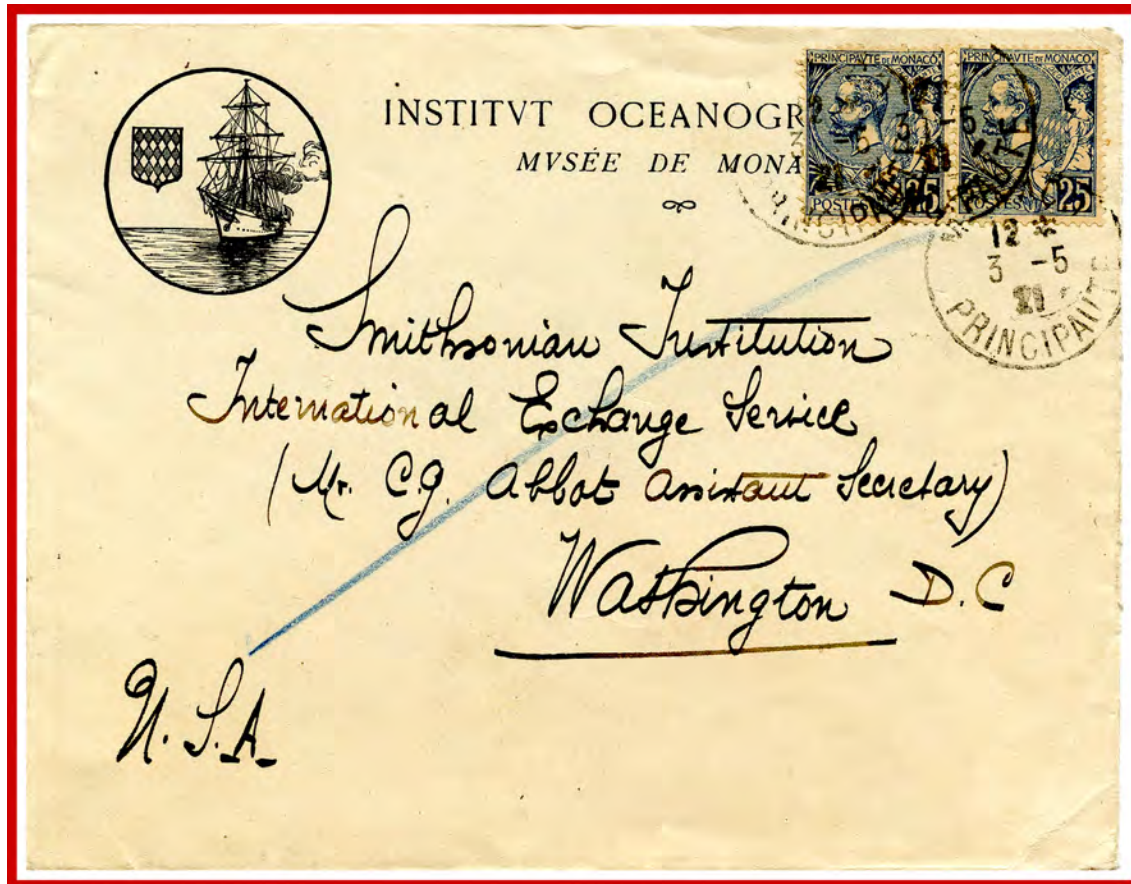 INSTITVT OCEANOGR
MVSÉE DE MONA
PRINCIPAVTÉ DE MONACO
PRINCIPAVTÉ DE MONACO
POSTES 25
POSTES 25
12
3 -5
21
PRINCIPAUTE
Smithsonian Institution
International Exchange Service
(Mr. C.G. Abbot Assistant Secretary)
Washington D.C
U.S.A.